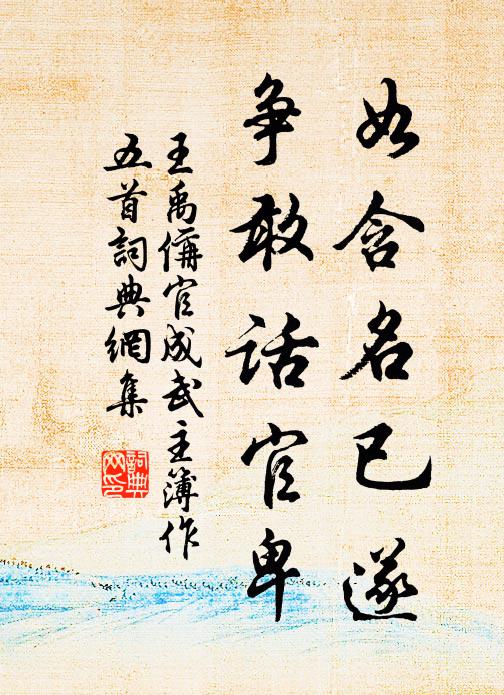 如含名已遂
争敢话官卑
王禹偁官成武主簿作
五首詞典網集
詞典
网印